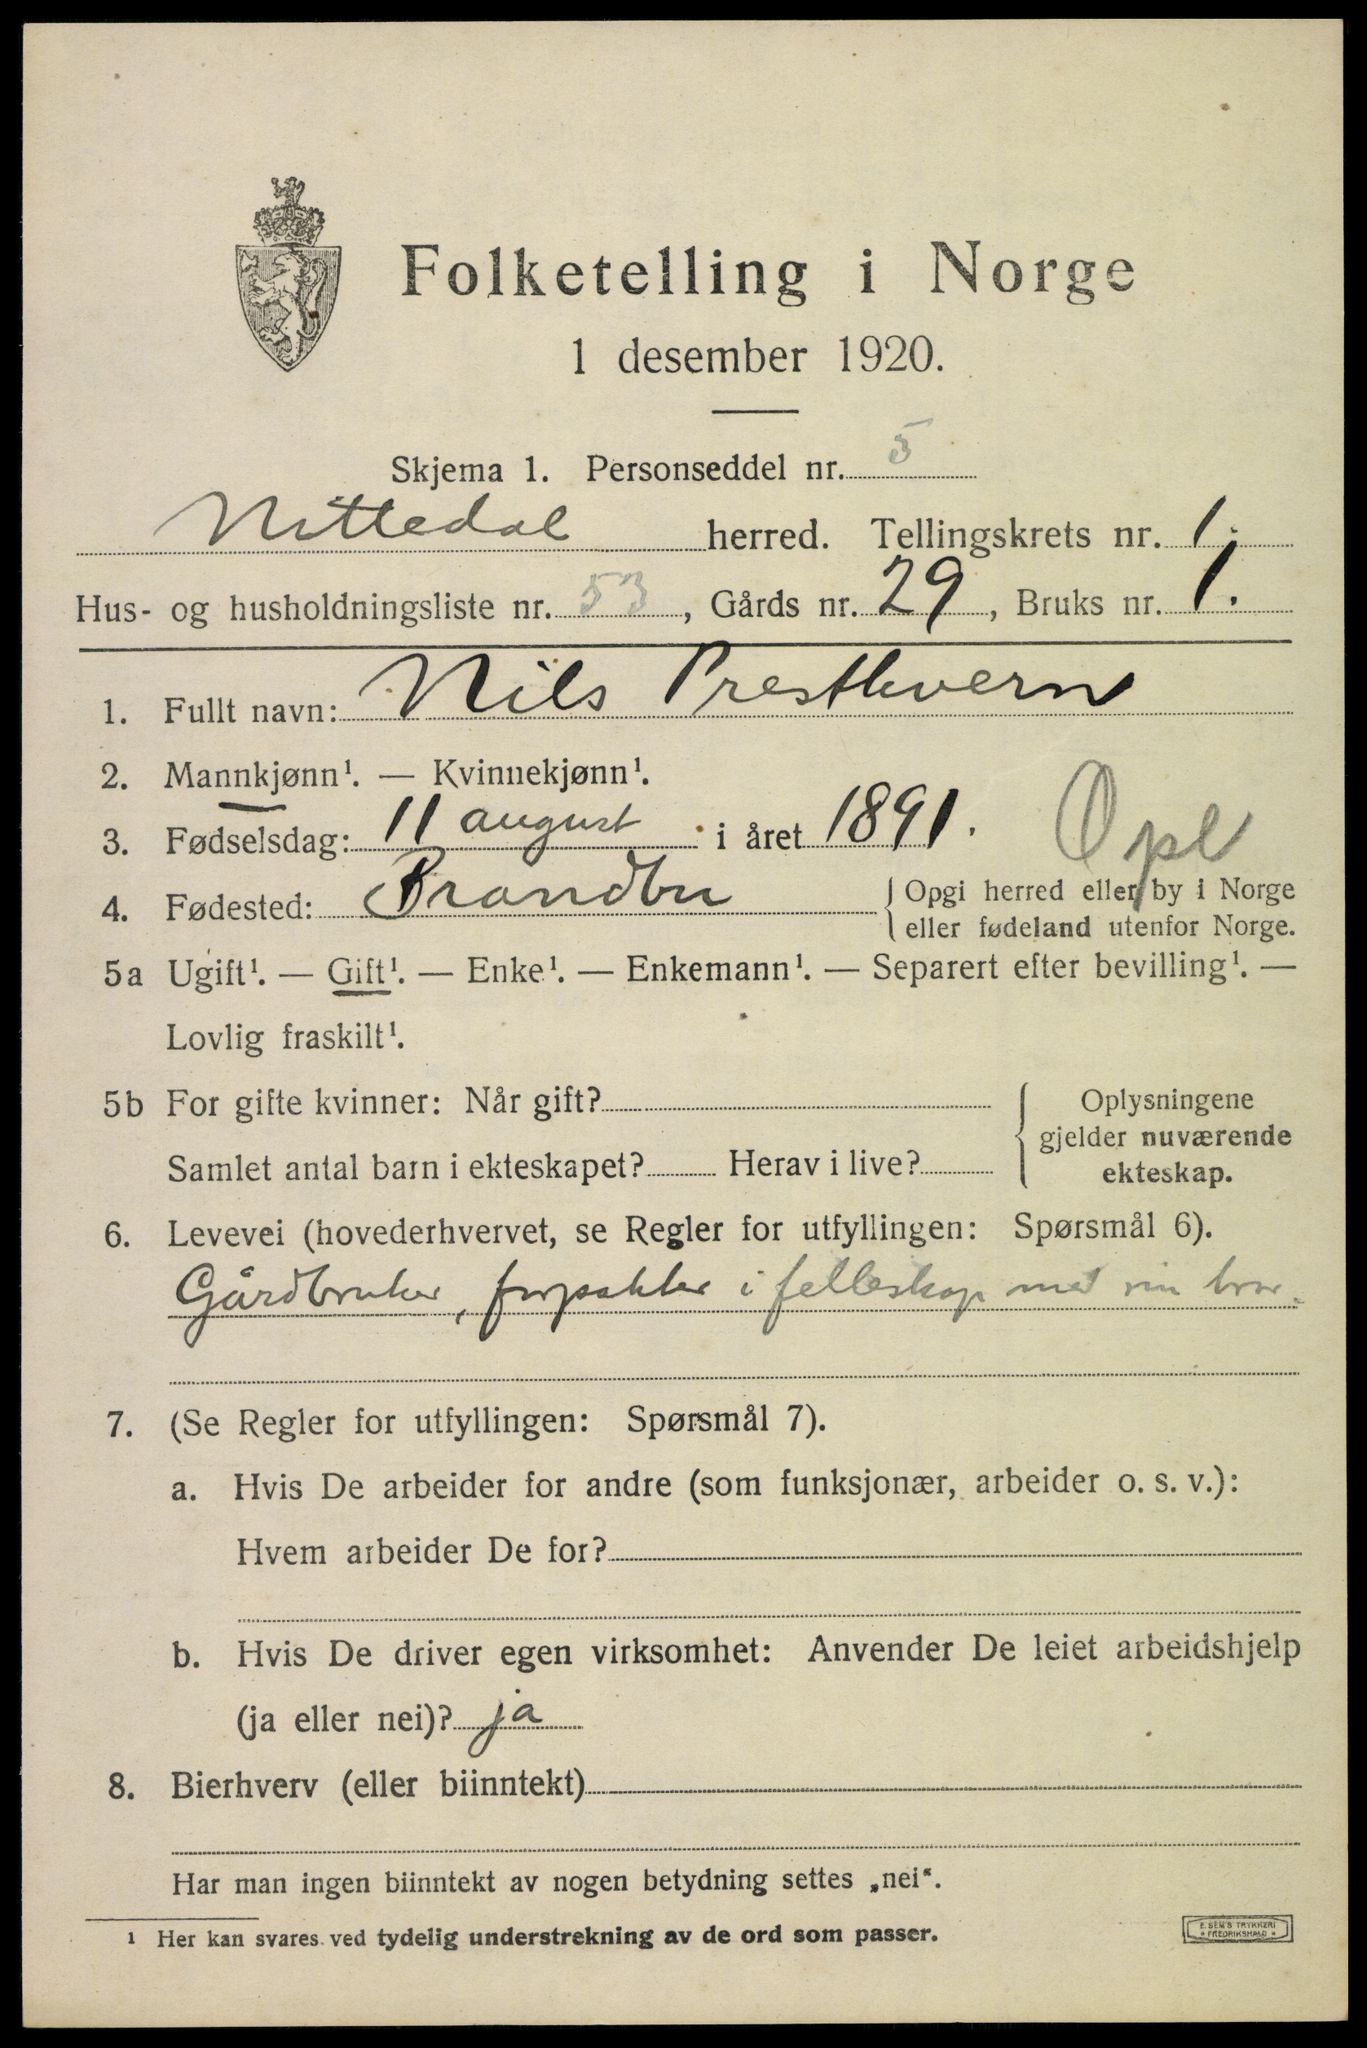 Folketelling i Norge
1 desember 1920.
Skjema 1. Personseddel nr. 5
Nittedal herred. Tellingskrets nr. 1.
Hus- og husholdningsliste nr. 53, Gårds nr. 29, Bruks nr. 1.
1. Fullt navn: Nils Presthvern
2. Mannkjønn¹. — Kvinnekjønn¹.
3. Fødselsdag: 11 august i året 1891. Opl
4. Fødested: Brandbu { Opgi herred eller by i Norge
eller fødeland utenfor Norge.
5a Ugift¹. — Gift¹. — Enke¹. — Enkemann¹. — Separert efter bevilling¹. —
Lovlig fraskilt¹.
5b For gifte kvinner: Når gift? { Oplysningene
gjelder nuværende
Samlet antal barn i ekteskapet? Herav i live? ekteskap.
6. Levevei (hovederhvervet, se Regler for utfyllingen: Spørsmål 6).
Gårdbruker, forpakter i felleskap med sin bror.
7. (Se Regler for utfyllingen: Spørsmål 7).
a. Hvis De arbeider for andre (som funksjonær, arbeider o. s. v.):
Hvem arbeider De for?
b. Hvis De driver egen virksomhet: Anvender De leiet arbeidshjelp
(ja eller nei)? ja
8. Bierhverv (eller biinntekt)
Har man ingen biinntekt av nogen betydning settes „nei“.
¹ Her kan svares ved tydelig understrekning av de ord som passer.
E. SEM'S TRYKKERI
* FREDRIKSHALD *